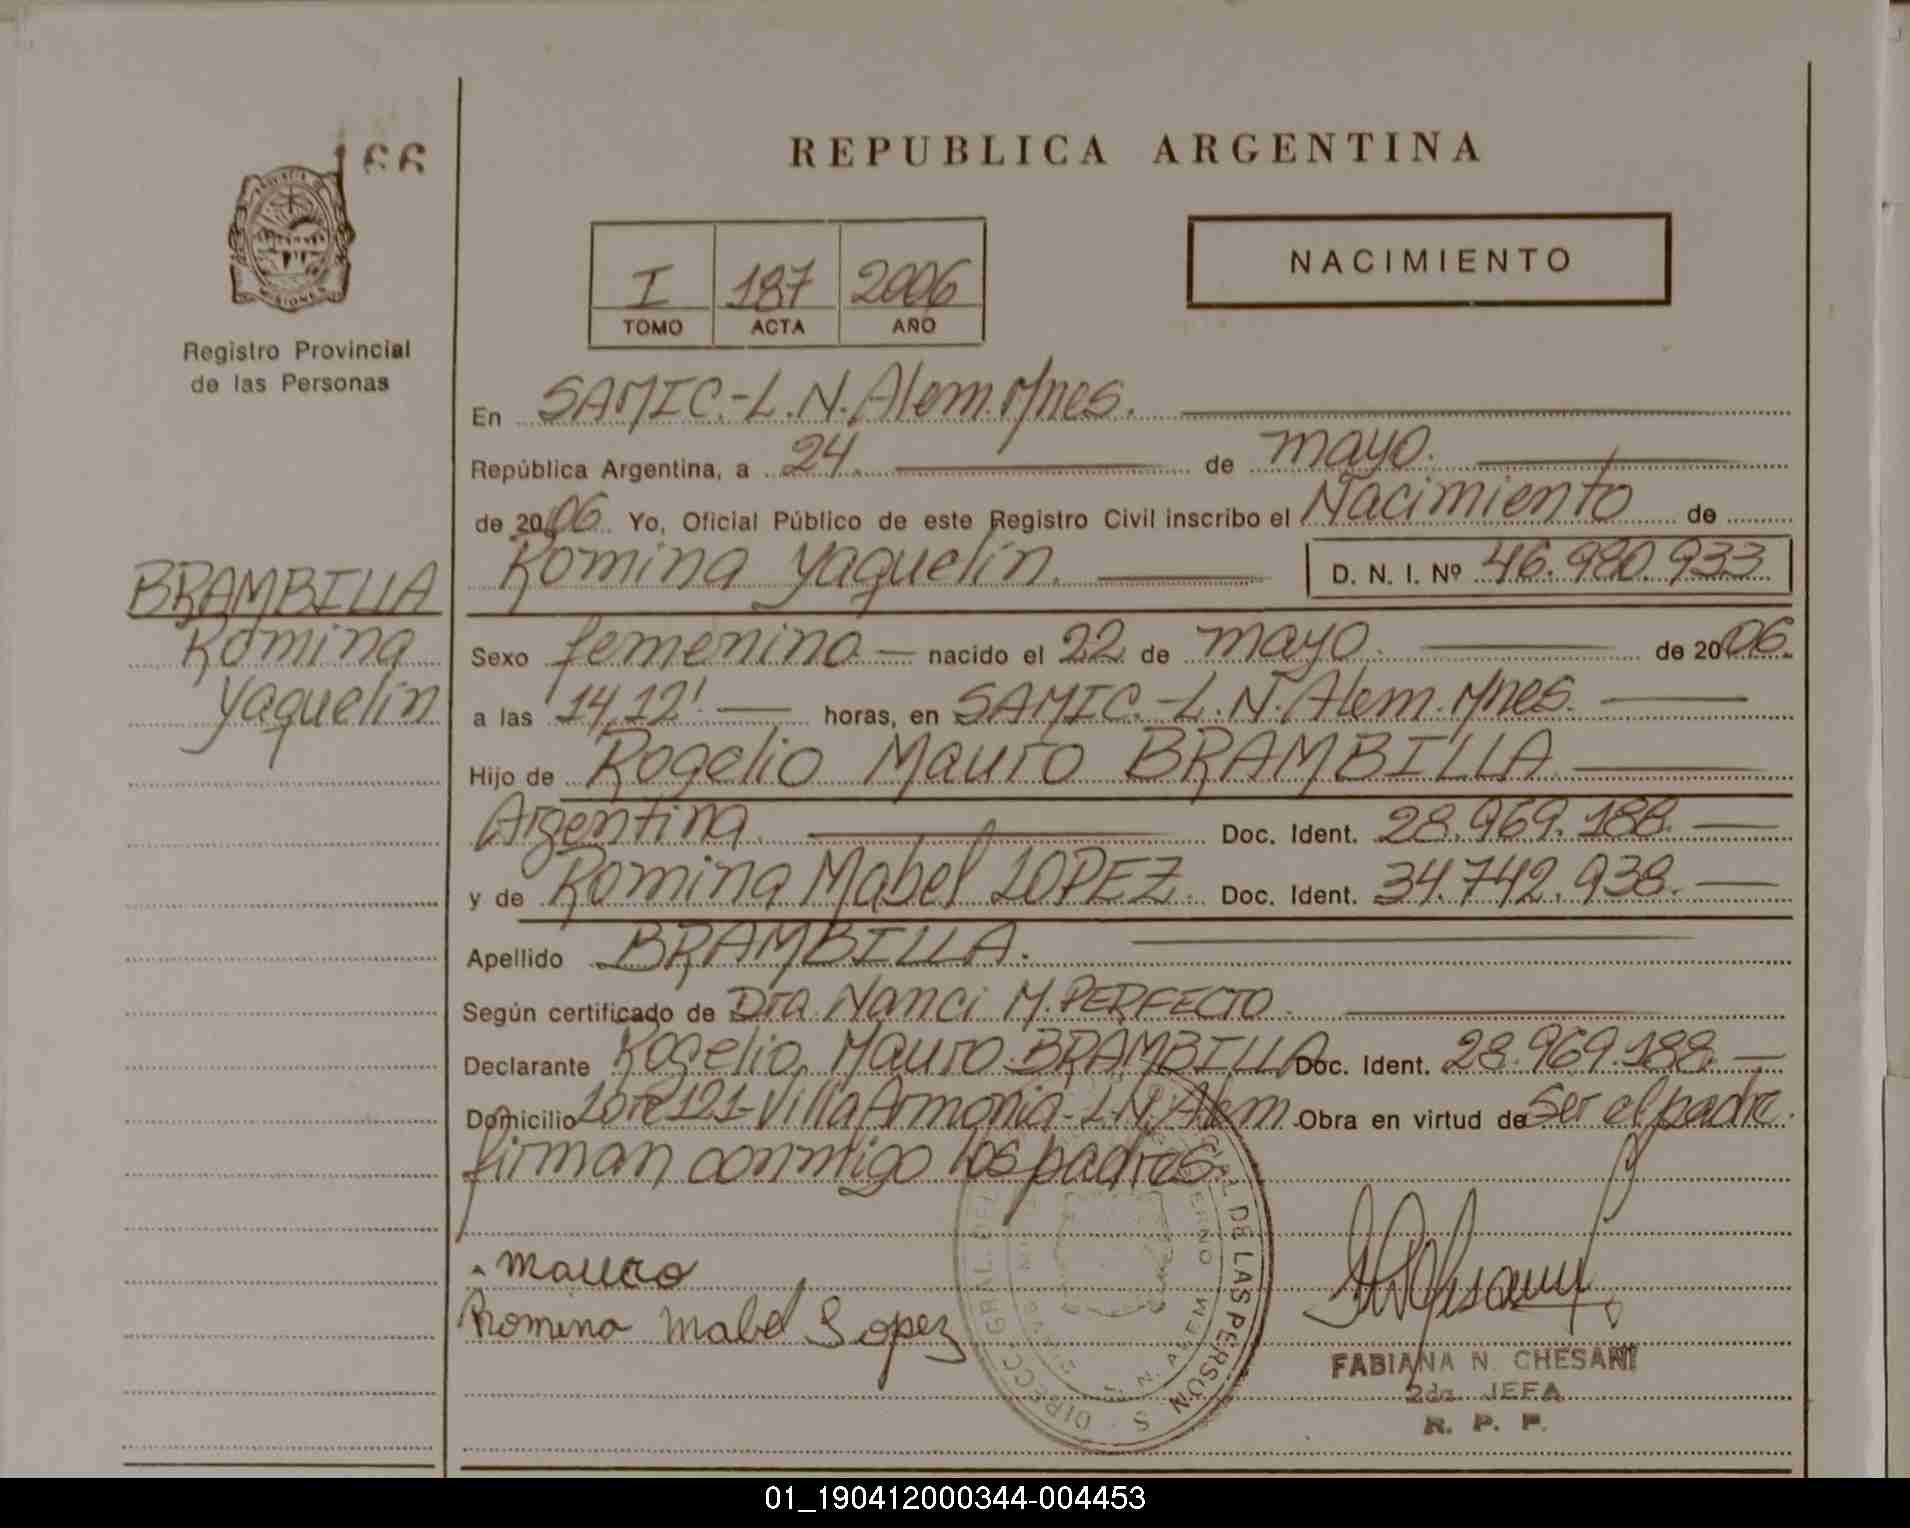 166
REPUBLICA ARGENTINA
PROVINCIA DE
MISIONES
Registro Provincial
de las Personas
I 187 2006
TOMO ACTA AÑO
NACIMIENTO
En SAMIC.-L.N.Alem.Mnes.
República Argentina, a 24. de mayo.
de 2006 Yo, Oficial Público de este Registro Civil inscribo el Nacimiento de
Romina Yaquelin. D. N. I. Nº 46.980.933
BRAMBILLA
Romina
Yaquelin
Sexo femenino nacido el 22 de mayo. de 2006.
a las 14,12' horas, en SAMIC.-L.N.Alem.Mnes.
Hijo de Rogelio Mauro BRAMBILLA
Argentina. Doc. Ident. 28.969.188.
y de Romina Mabel LOPEZ. Doc. Ident. 34.742.938.
Apellido BRAMBILLA.
Según certificado de Dra Nanci M. PERFECTO.
Declarante Rogelio Mauro BRAMBILLA Doc. Ident. 28.969.188.
Domicilio Lote 121-Villa Armonia-L.N.Alem. Obra en virtud de Ser el padre.
firman conmigo los padres.
mauro
Romina Mabel Lopez
DIRECC. GRAL. DEL DE LAS PERSONAS
L. N. ALEM
FABIANA N. CHESANI
2da JEFA
R. P. P.
01_190412000344-004453